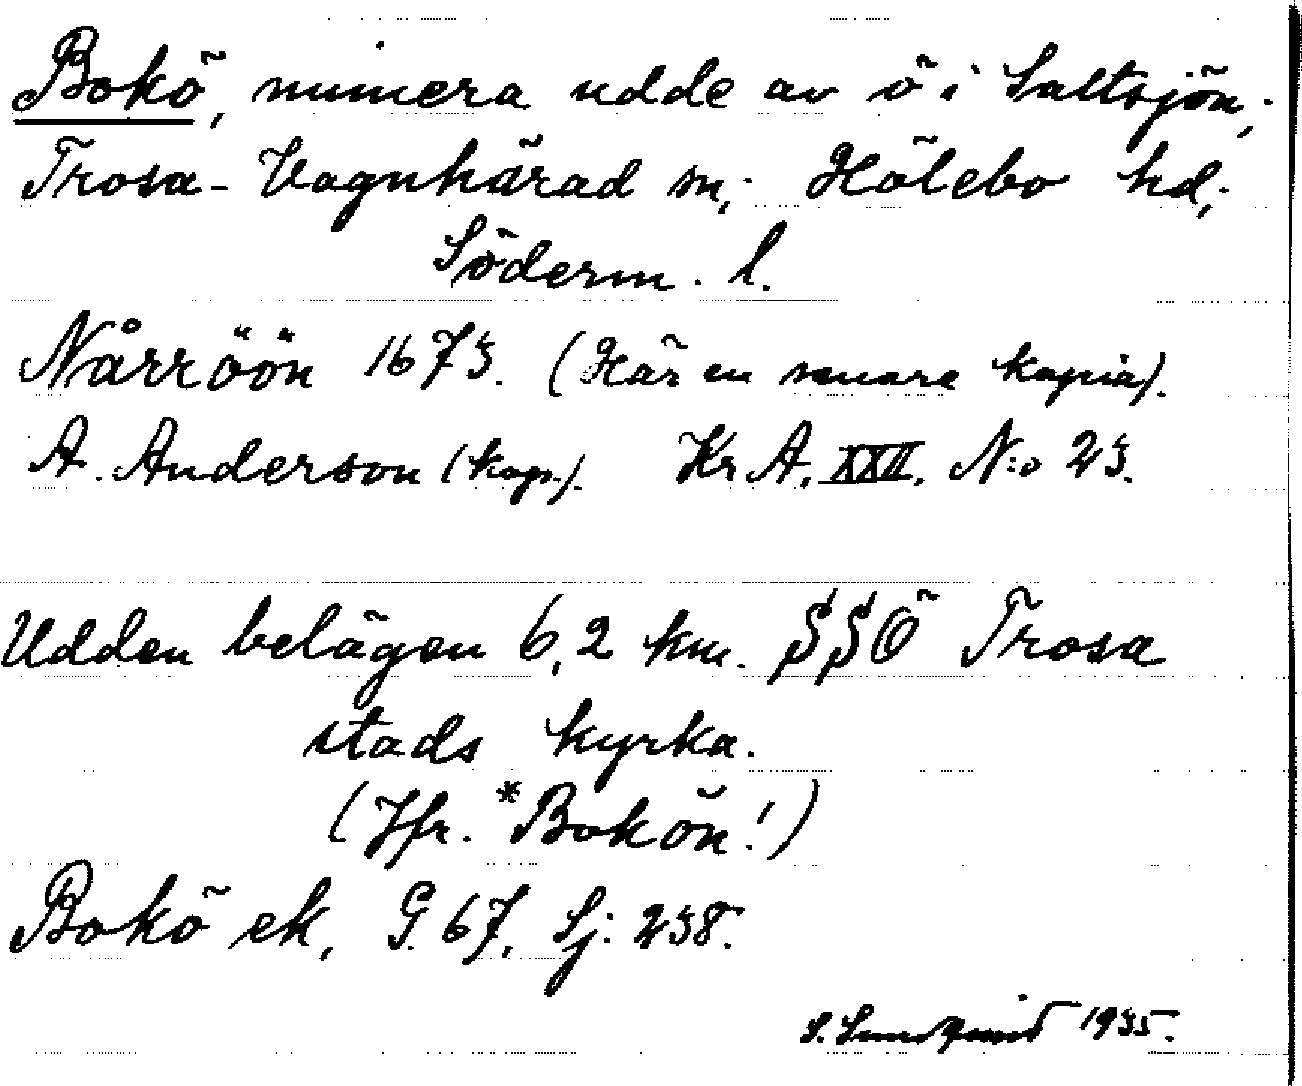 Bokö, numera udde av ö i Saltsjön,
Trosa-Vagnhärad sn, Hölebo hd,
Söderm. l.
Nårröön 1673. (Här en senare kopia).
A. Anderson (kop.). Kr A, XXII, N:o 23.
Udden belägen 6,2 km. SSÖ Trosa
stads kyrka.
(Jfr. *Bokön!)
Bokö ek, G. 67, Sj: 238.
S. Sundqvist 1935.